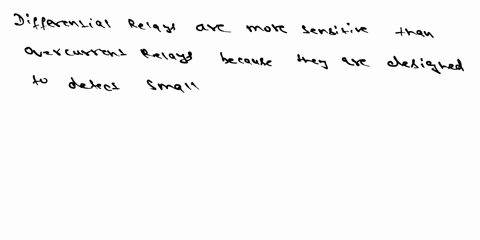 Differential Relays are more sensitive than
overcurrent Relays because they are designed
to detect small